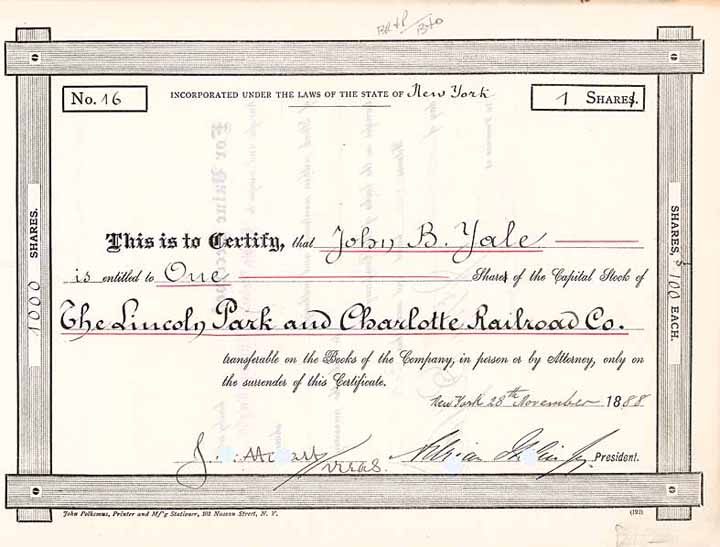 BR&P
B&O
No. 16
INCORPORATED UNDER THE LAWS OF THE STATE OF New York
1 SHARES.
1000 SHARES.
SHARES, $100 EACH.
This is to Certify, that John B. Yale
is entitled to One Shares of the Capital Stock of
The Lincoln Park and Charlotte Railroad Co.
transferable on the Books of the Company, in person or by Attorney, only on
the surrender of this Certificate.
New York 28th November 1888
Treas.
Adrian Iselin Jr President.
John Polhemus, Printer and M'f'g Stationer, 102 Nassau Street, N. Y.
(192)